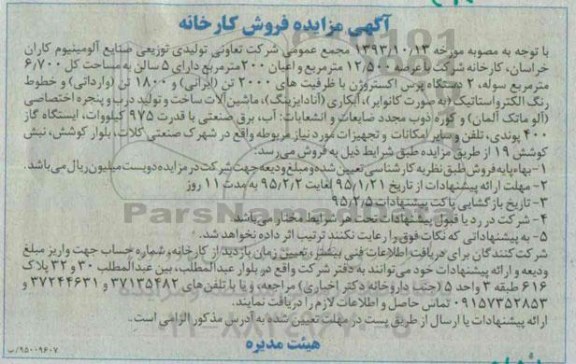 آگهی مزایده فروش کارخانه
با توجه به مصوبه مورخه ۱۳۹۳/۱۰/۱۳ مجمع عمومی شرکت تعاونی تولیدی توزیعی صنایع آلومینیوم کاران
خراسان، کارخانه شرکت با عرصه ۱۲,۵۰۰ مترمربع و اعیان ۲۰۰ مترمربع دارای ۵ سالن به مساحت کل ۶,۷۰۰
مترمربع سوله، ۲ دستگاه پرس اکستروژن با ظرفیت های ۲۰۰۰ تن (ایرانی) و ۱۸۰۰ تن (وارداتی) و خطوط
رنگ الکترواستاتیک (به صورت کانوایر)، آبکاری (آنادایزینگ)، ماشین آلات ساخت و تولید درب و پنجره اختصاصی
(آلو ماتک آلمان) و کوره ذوب مجدد ضایعات و انشعابات: آب، برق صنعتی با قدرت ۹۷۵ کیلووات، ایستگاه گاز
۴۰۰ پوندی، تلفن و سایر امکانات و تجهیزات مورد نیاز مربوطه واقع در شهرک صنعتی کلات، بلوار کوشش، نبش
کوشش ۱۹ از طریق مزایده طبق شرایط ذیل به فروش می‌رسد:
۱- بهاء پایه فروش طبق نظریه کارشناسی تعیین شده و مبلغ ودیعه جهت شرکت در مزایده دویست میلیون ریال می‌باشد.
۲- مهلت ارائه پیشنهادات از تاریخ ۹۵/۱/۲۱ لغایت ۹۵/۲/۲ به مدت ۱۱ روز
۳- تاریخ بازگشایی پاکت پیشنهادات ۹۵/۲/۵
۴- شرکت در رد یا قبول پیشنهادات تحت هر شرایط مختار می‌باشد.
۵- به پیشنهاداتی که نکات فوق را رعایت نکنند ترتیب اثر داده نخواهد شد.
شرکت کنندگان برای دریافت اطلاعات فنی بیشتر و تعیین زمان بازدید از کارخانه و شماره حساب جهت واریز مبلغ
ودیعه و ارائه پیشنهادات خود می‌توانند به دفتر شرکت واقع در بلوار عبدالمطلب، بین عبدالمطلب ۳۰ و ۳۲ پلاک
۶۱۶ طبقه ۳ واحد ۵ (جنب داروخانه دکتر اخباری) مراجعه، و یا با تلفن‌های ۳۷۱۳۵۴۸۲ و ۳۷۲۴۴۶۳۱ و
۰۹۱۵۷۳۵۲۸۵۳ تماس حاصل و اطلاعات لازم را دریافت نمایند.
ارائه پیشنهادات یا ارسال از طریق پست در مهلت تعیین شده به آدرس مذکور الزامی است.
هیئت مدیره
/۹۵۰۰۹۶۰۷ب